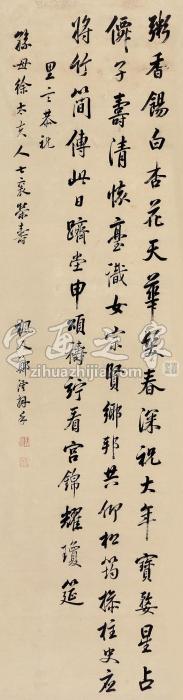 粥香餳白杏花天華誕春深祝大年寶婺星占
僊子壽清懷臺識女宗賢鄉邦共仰松筠操柱史應
將竹簡傳此日躋堂申頌禱竚看宮錦耀瓊筵
里言恭祝
孫母徐太夫人七袠榮壽
姻人鄭
字画之家
zihuazhijia.com